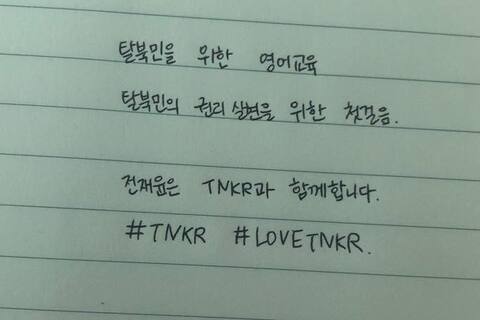 탈북민을 위한 영어교육
탈북민의 권리실현을 위한 첫걸음.
전재윤은 TNKR과 함께합니다.
#TNKR #LOVETNKR.